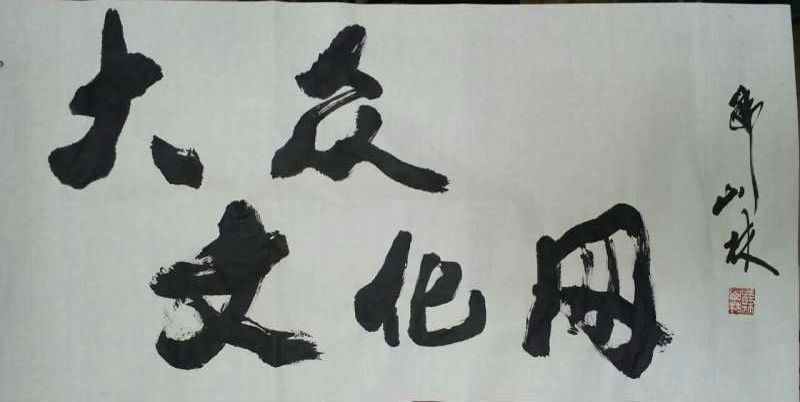 大众
文化网
山林